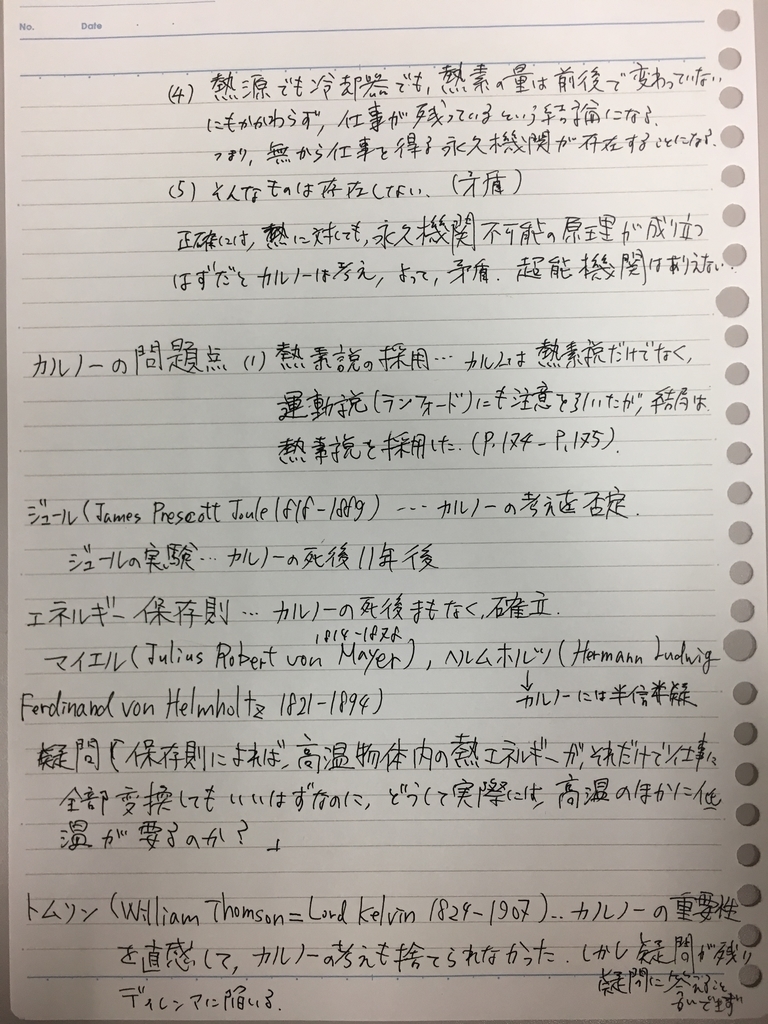 No.
Date
(4) 熱源でも冷却器でも, 熱素の量は前後で変わっていない
にもかかわらず, 仕事が残っているという結論になる.
つまり, 無から仕事を得る永久機関が存在することになる.
(5) そんなものは存在しない. (矛盾)
正確には, 熱に対しても, 永久機関不可能の原理が成り立つ
はずだとカルノーは考え, よって, 矛盾. 超能機関はありえない.
カルノーの問題点 (1) 熱素説の採用… カルノーは熱素説だけでなく,
運動説(ランフォード)にも注意を引いたが, 結局は
熱素説を採用した. (P.174-P.175).
ジュール(James Prescott Joule 1818-1889) … カルノーの考えを否定.
ジュールの実験… カルノーの死後11年後
エネルギー保存則 … カルノーの死後まもなく, 確立.
1814-1878
マイエル(Julius Robert von Mayer), ヘルムホルツ(Hermann Ludwig
Ferdinand von Helmholtz 1821-1894)
↓カルノーには半信半疑
疑問「保存則によれば, 高温物体内の熱エネルギーが, それだけで仕事に
全部変換してもいいはずなのに, どうして実際には, 高温のほかに低
温が要るのか? 」
トムソン (William Thomson=Lord Kelvin 1824-1907)… カルノーの重要性
を直感して, カルノーの考えも捨てられなかった. しかし疑問が残り
ディレンマに陥いる.
疑問に答えること
できず